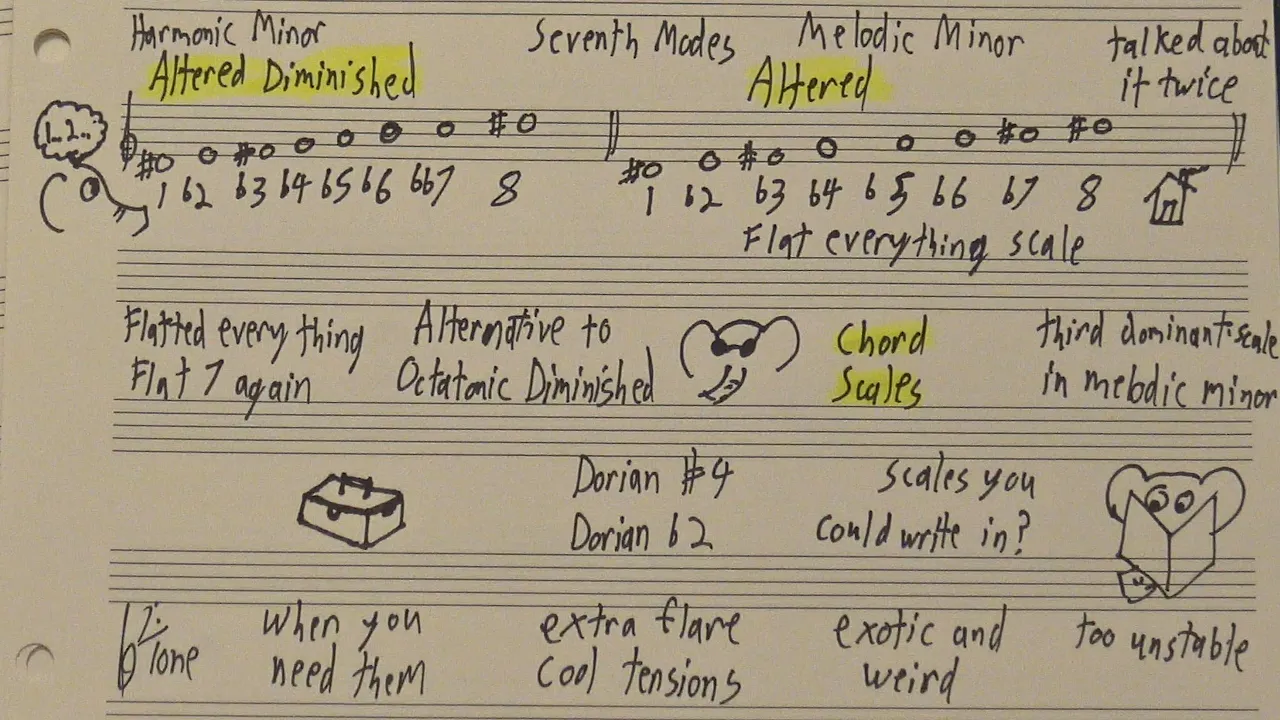 Harmonic Minor
Altered Diminished
Seventh Modes
Melodic Minor
Altered
talked about
it twice
1.. 2...
1 b2 b3 b4 b5 b6 bb7 8
1 b2 b3 b4 b5 b6 b7 8
Flat everything scale
Flatted everything
Flat 7 again
Alternative to
Octatonic Diminished
Chord
Scales
third dominant scale
in melodic minor
Dorian #4
Dorian b2
scales you
could write in?
when you
need them
extra flare
cool tensions
exotic and
weird
too unstable